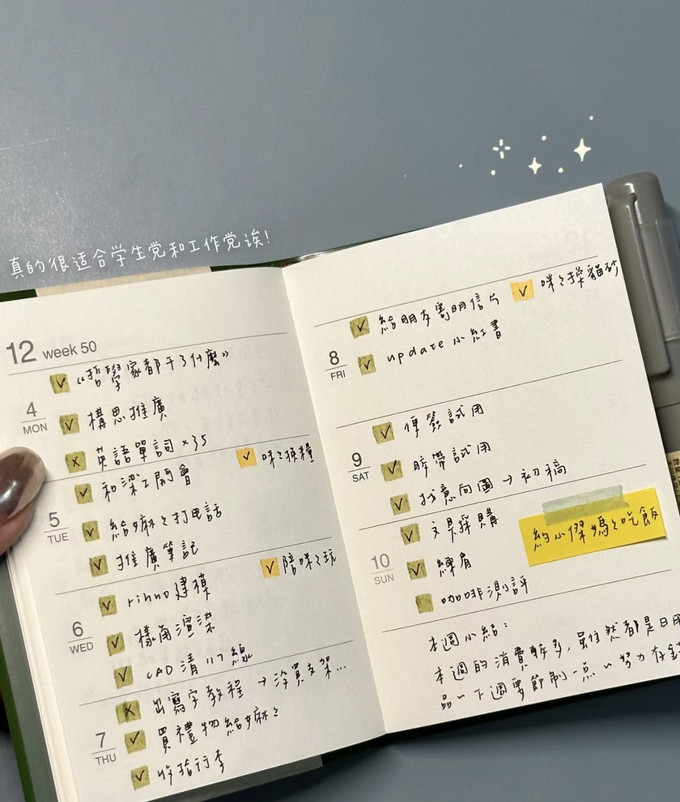 真的很适合学生党和工作党诶!
12 week 50
4 MON
✓ 《哲學家都干了什麼》
✓ 構思推廣
x 英語單詞 ×35
5 TUE
✓ 和梁工開會
✓ 咪々換糧
✓ 給麻々打電話
✓ 推廣筆記
6 WED
✓ rinno建模
✓ 陪咪々玩
✓ 樣角渲染
✓ CAD 清
7 THU
x 出寫字教程 → 沒買支架...
✓ 買禮物給麻々
✓ 收拾行李
8 FRI
✓ 給朋友寄明信片
✓ 咪々換貓砂
✓ update 小紅書
9 SAT
✓ 便簽試用
✓ 膠帶試用
✓ 找意向圖 → 初稿
10 SUN
✓ 文具採購
約小傑媽々吃飯
✓ 練肩
咖啡測評
本週小結:
本週的消費較多,雖然都是日用
品~下週要節制一点~努力存錢